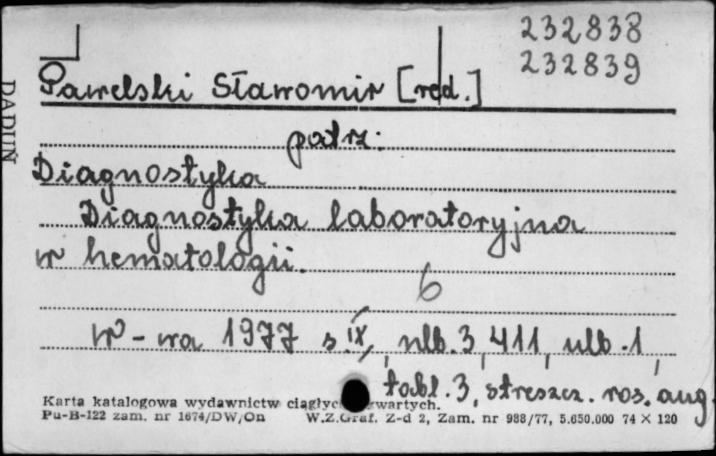 232838
232839
Pawelski Sławomir [red.]
patrz:
Diagnostyka
Diagnostyka laboratoryjna
w hematologii.
6
W-wa 1977 s. IX, nlb. 3, 411, nlb. 1,
tabl. 3, streszcz. ros. ang.
Karta katalogowa wydawnictw
Pu-B-122 zam. nr 1674/DW/On W.Z.Graf. Z-d 2, Zam. nr 988/77, 5.650.000 74 × 120
DADUŃ